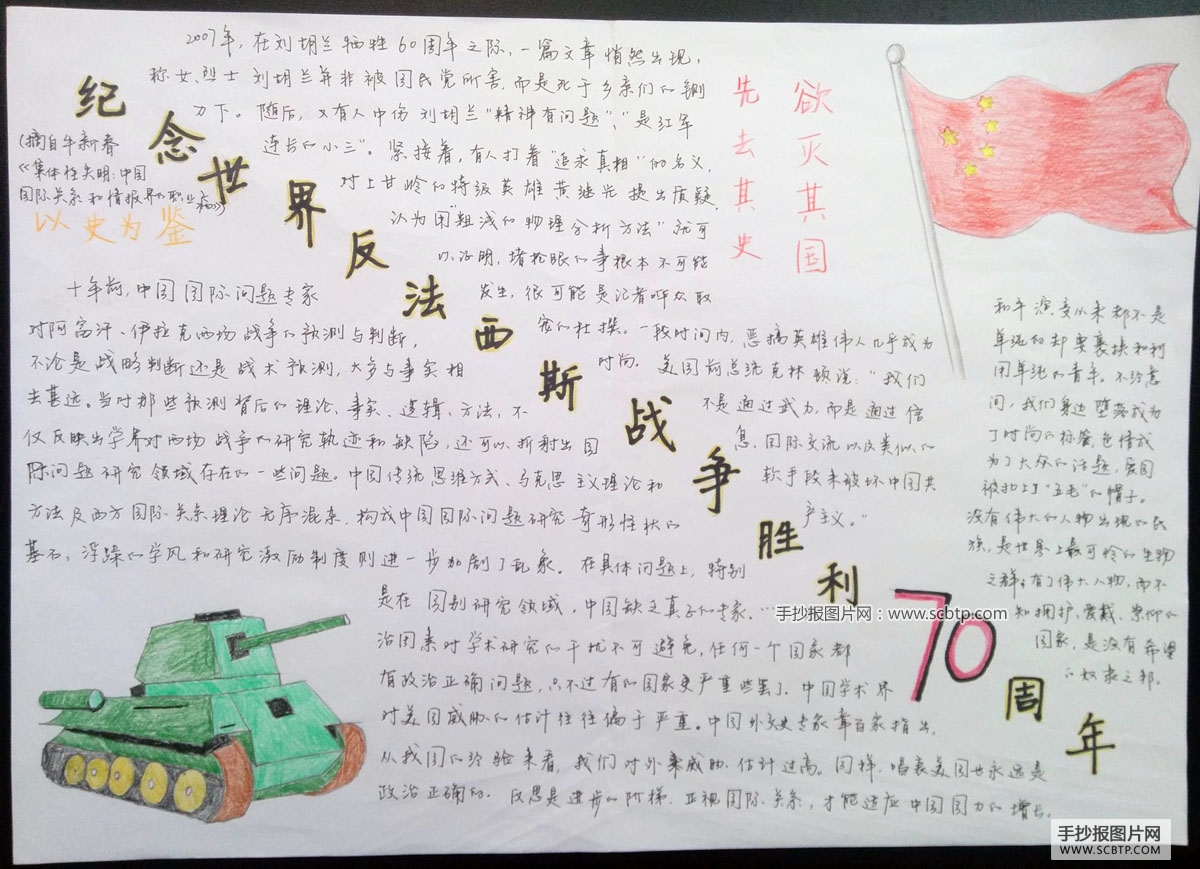 纪念世界反法西斯战争胜利
70
周年
2007年,在刘胡兰牺牲60周年之际,一篇文章悄然出现,
称女烈士刘胡兰并非被国民党所害,而是死于乡亲们的铡
刀下。随后,又有人中伤刘胡兰“精神有问题”,“是红军
连长的小三”。紧接着,有人打着“追求真相”的名义,
对上甘岭的特级英雄黄继光提出质疑,
认为用“粗浅的物理分析方法”就可
以证明,堵枪眼的事根本不可能
发生,很可能是记者哗众取
宠的杜撰。一段时间内,恶搞英雄伟人几乎成为
时尚。美国前总统克林顿说:“我们
不是通过武力,而是通过信
息、国际交流以及类似的
软手段来破坏中国共
产主义。”
先去其史
欲灭其国
(摘自牛新春
《集体性失明:中国
国际关系和情报界的职业病》)
以史为鉴
十年前,中国国际问题专家
对阿富汗、伊拉克两场战争的预测与判断,
不论是战略判断还是战术预测,大多与事实相
去甚远。当时那些预测背后的理论、事实、逻辑、方法,不
仅反映出学界对两场战争的研究轨迹和缺陷,还可以折射出国
际问题研究领域存在的一些问题。中国传统思维方式、马克思主义理论和
方法及西方国际关系理论无序混杂,构成中国国际问题研究奇形怪状的
基石,浮躁的学风和研究激励制度则进一步加剧了乱象。在具体问题上,特别
是在国别研究领域,中国缺乏真正的专家.…
治因素对学术研究的干扰不可避免,任何一个国家都
有政治正确问题,只不过有的国家更严重些罢了。中国学术界
对美国威胁的估计往往偏于严重。中国外交史专家章百家指出,
从我国的经验来看,我们对外来威胁估计过高。同样,唱衰美国也永远是
政治正确的。反思是进步的阶梯,正视国际关系,才能适应中国国力的增长。
和平演变从来都不是
单纯的却要裹挟和利
用单纯的青年。不经意
间,我们身边堕落成为
了时尚的标签,色情成
为了大众的话题,爱国
被扣上了“五毛”的帽子。
没有伟大的人物出现的民
族,是世界上最可怜的生物
之群;有了伟大人物,而不
知拥护、爱戴、崇仰的
国家,是没有希望
的奴隶之邦。
手抄报图片网:www.scbtp.com
手抄报图片网
WWW.SCBTP.COM